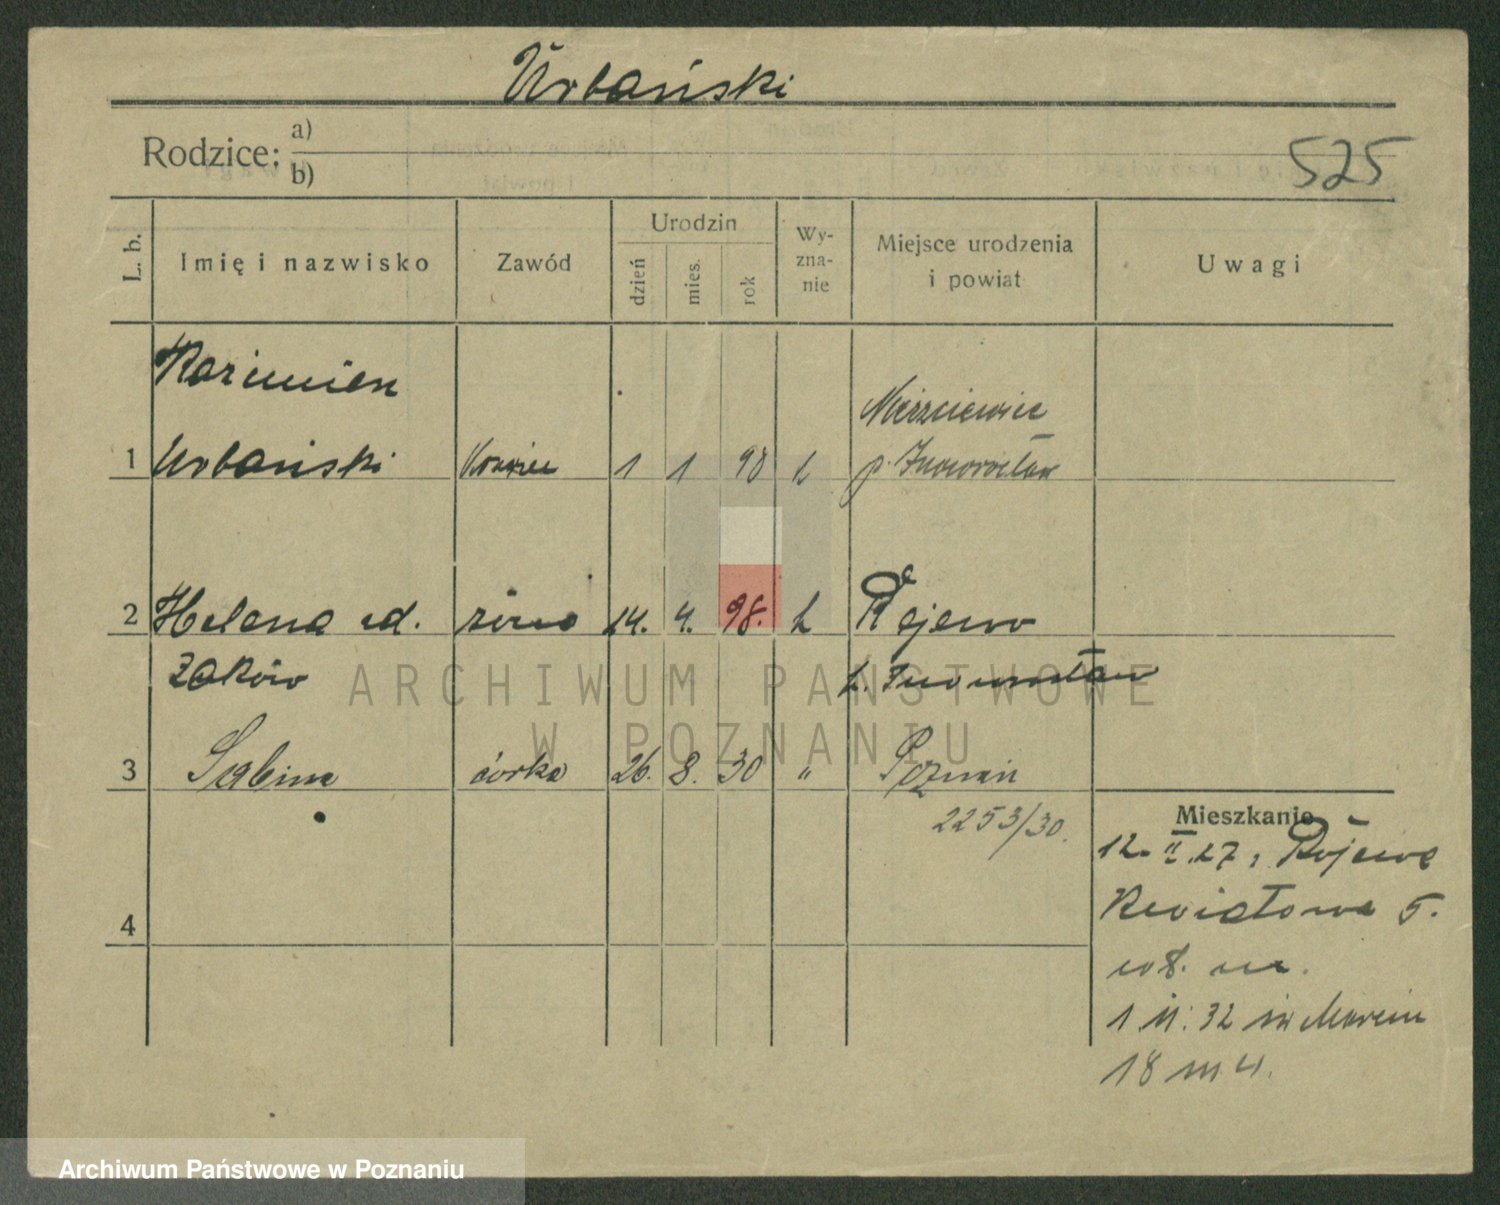 Urbański
525
Rodzice: a)
b)
L. b.
Imię i nazwisko
Zawód
Urodzin
dzień
mies.
rok
Wy-
zna-
nie
Miejsce urodzenia
i powiat
Uwagi
Kazimierz
1 Urbański Krawiec 1 1 98 k
p. Inowrocław
2 Helena ud. żona 14. 4. 98. k Rojewo
Żaków
p. Inowrocław
3 Sabina córka 26. 8. 30 " Poznań
2253/30.
4
Mieszkanie
12. II. 27, Rojewo
Kwiatowa 5.
1 11. 32 św Marcin
18 m 4.
ARCHIWUM PAŃSTWOWE
W POZNANIU
Archiwum Państwowe w Poznaniu